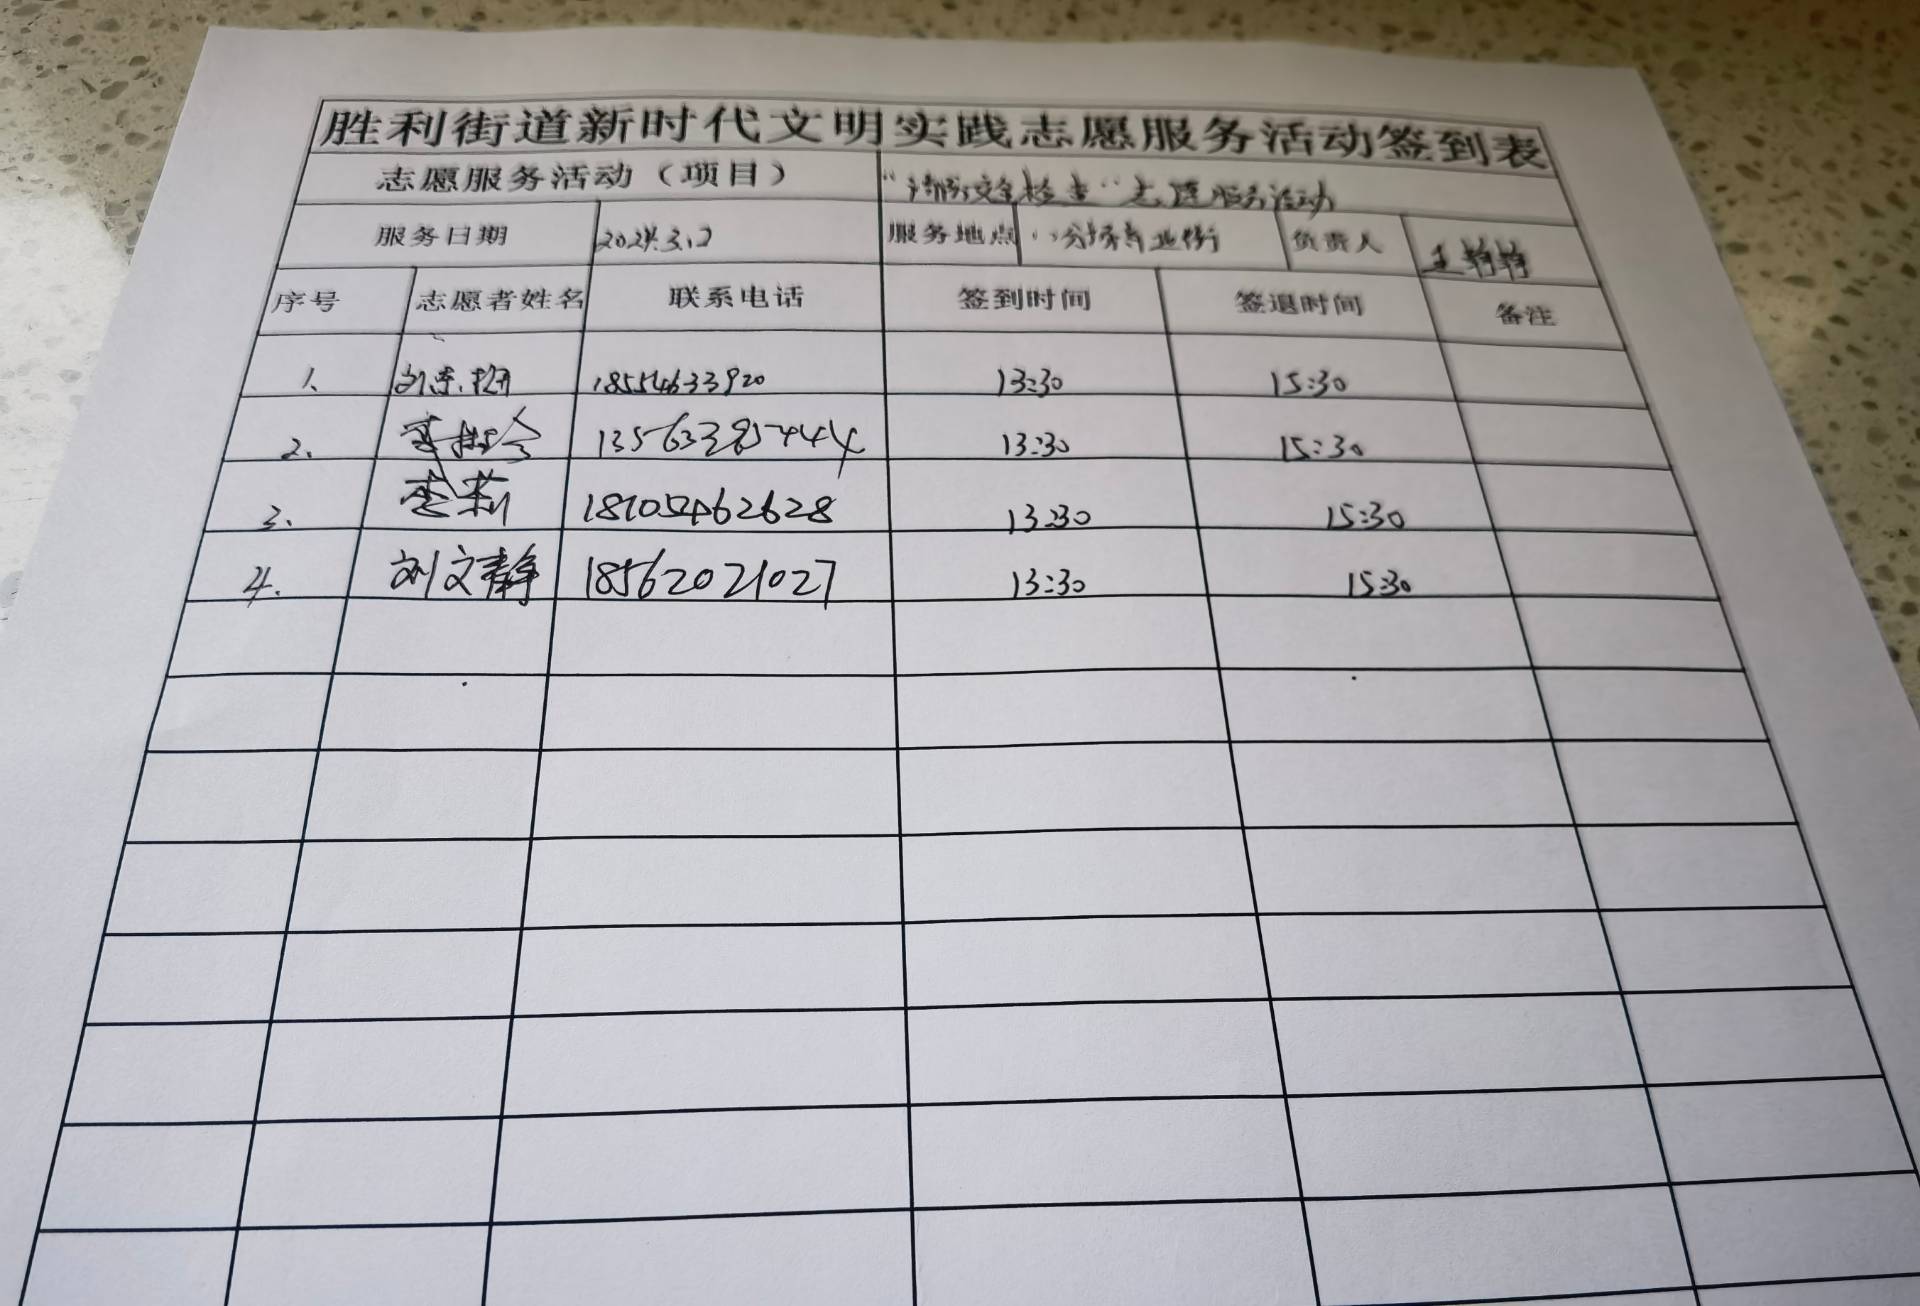 胜利街道新时代文明实践志愿服务活动签到表
志愿服务活动（项目） “消防安全检查”志愿服务活动
服务日期 2024.3.12 服务地点 商业街 负责人
序号 志愿者姓名 联系电话 签到时间 签退时间 备注
1. 18554633920 13:30 15:30
2. 13563385444 13:30 15:30
3. 李莉 18705462628 13:30 15:30
4. 刘文静 18562021027 13:30 15:30